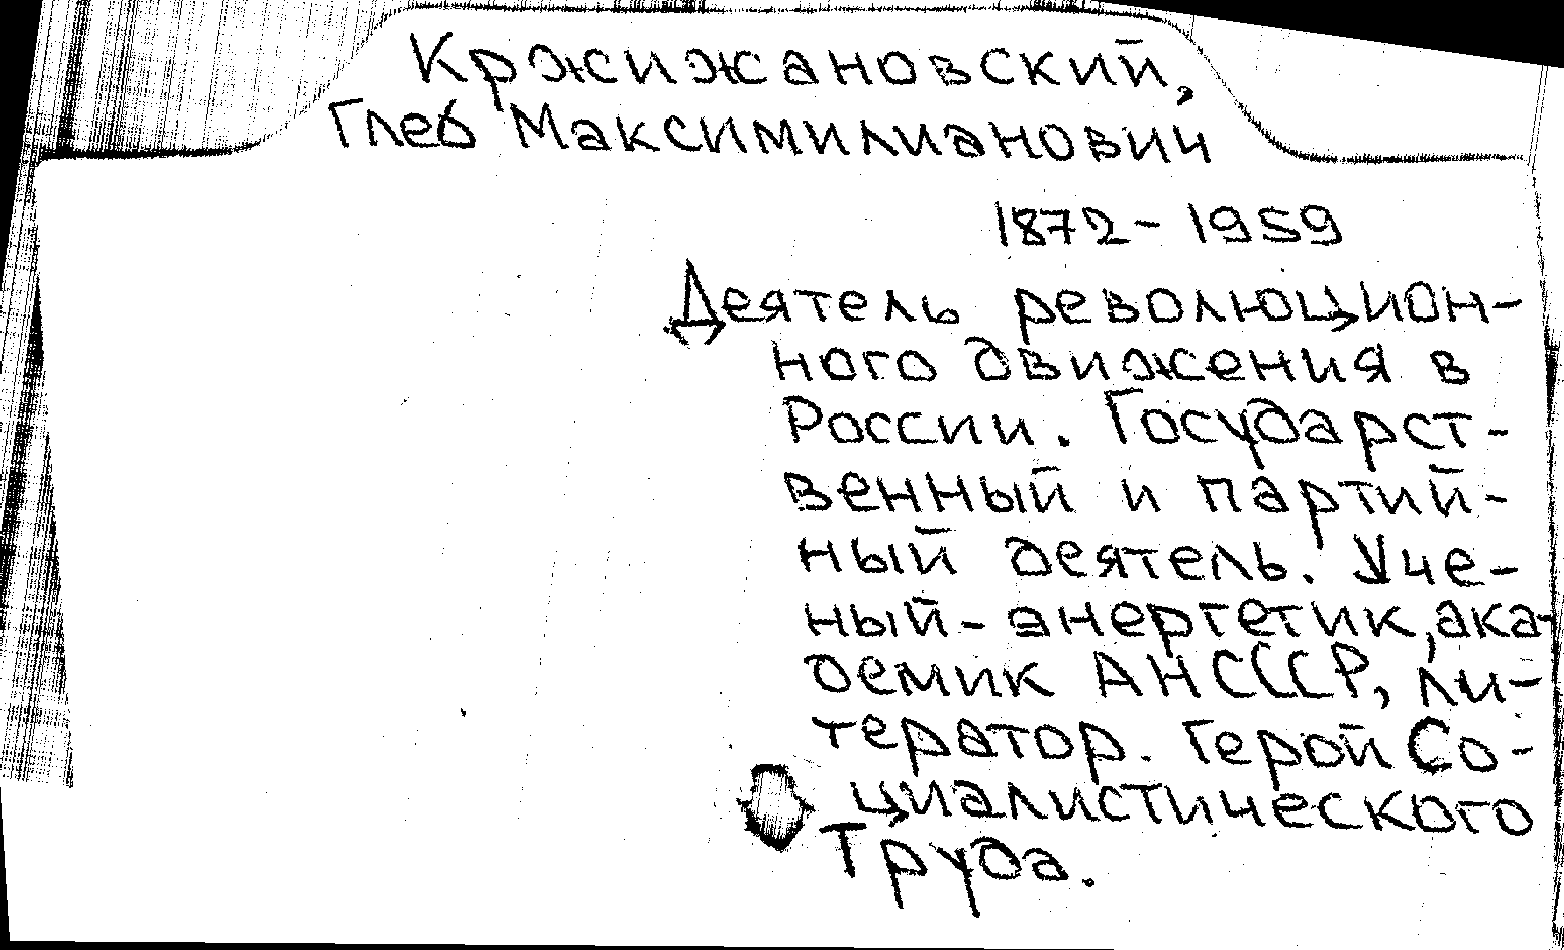 Кржижановский,
Глеб Максимилианович
1872-1959
Деятель революцион-
ного движения в
России. Государст-
венный и партий-
ный деятель. Уче-
ный-энергетик, ака-
демик АНСССР, ли-
тератор. Герой Со-
циалистического
Труда.